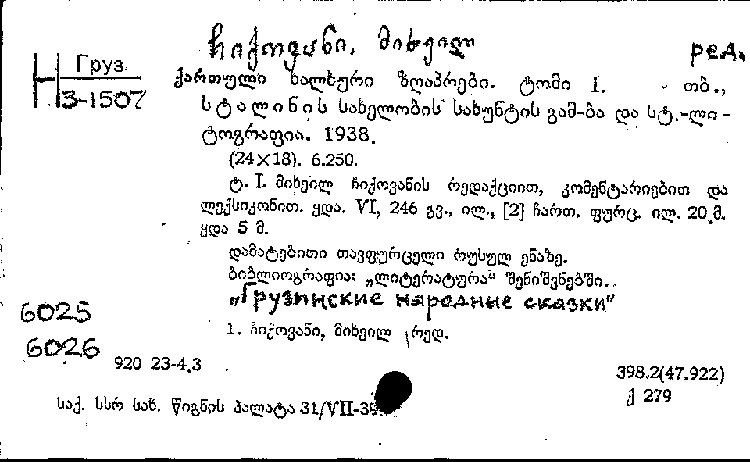 ჩიქოვანი, მიხეილ ред.
Н Груз
3-1507
ქართული ხალხური ზღაპრები. ტომი I. თბ.,
სტალინის სახელობის სახუნტის გამ-ბა და სტ.-ლი-
ტოგრაფია. 1938.
(24×18). 6.250.
ტ. I. მიხეილ ჩიქოვანის რედაქციით, კომენტარიებით და
ლექსიკონით. ყდა. VI, 246 გვ., ილ., [2] ჩართ. ფურც. ილ. 20 მ.
ყდა 5 მ.
დამატებითი თავფურცელი რუსულ ენაზე.
ბიბლიოგრაფია: „ლიტერატურა“ შენიშვნებში..
„Грузинские народные сказки“
6025
1. ჩიქოვანი, მიხეილ რედ.
6026
920 23-4.3
398.2(47.922)
ქ 279
საქ. სსრ სახ. წიგნის პალატა 31/VII-39